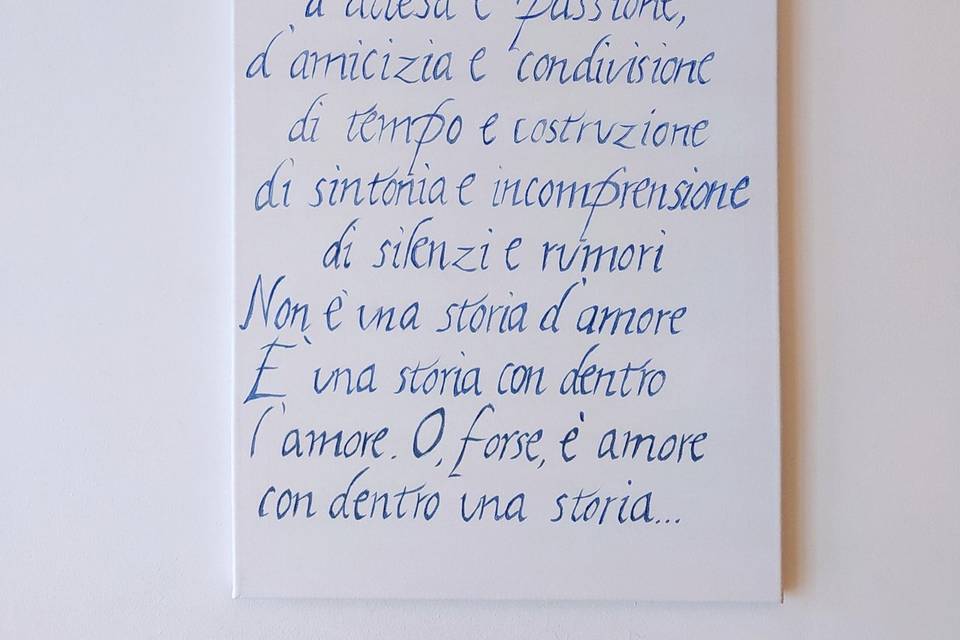 d'attesa e passione,
d'amicizia e condivisione
di tempo e costruzione
di sintonia e incomprensione
di silenzi e rumori
Non è una storia d'amore
E' una storia con dentro
l'amore. O, forse, è amore
con dentro una storia...